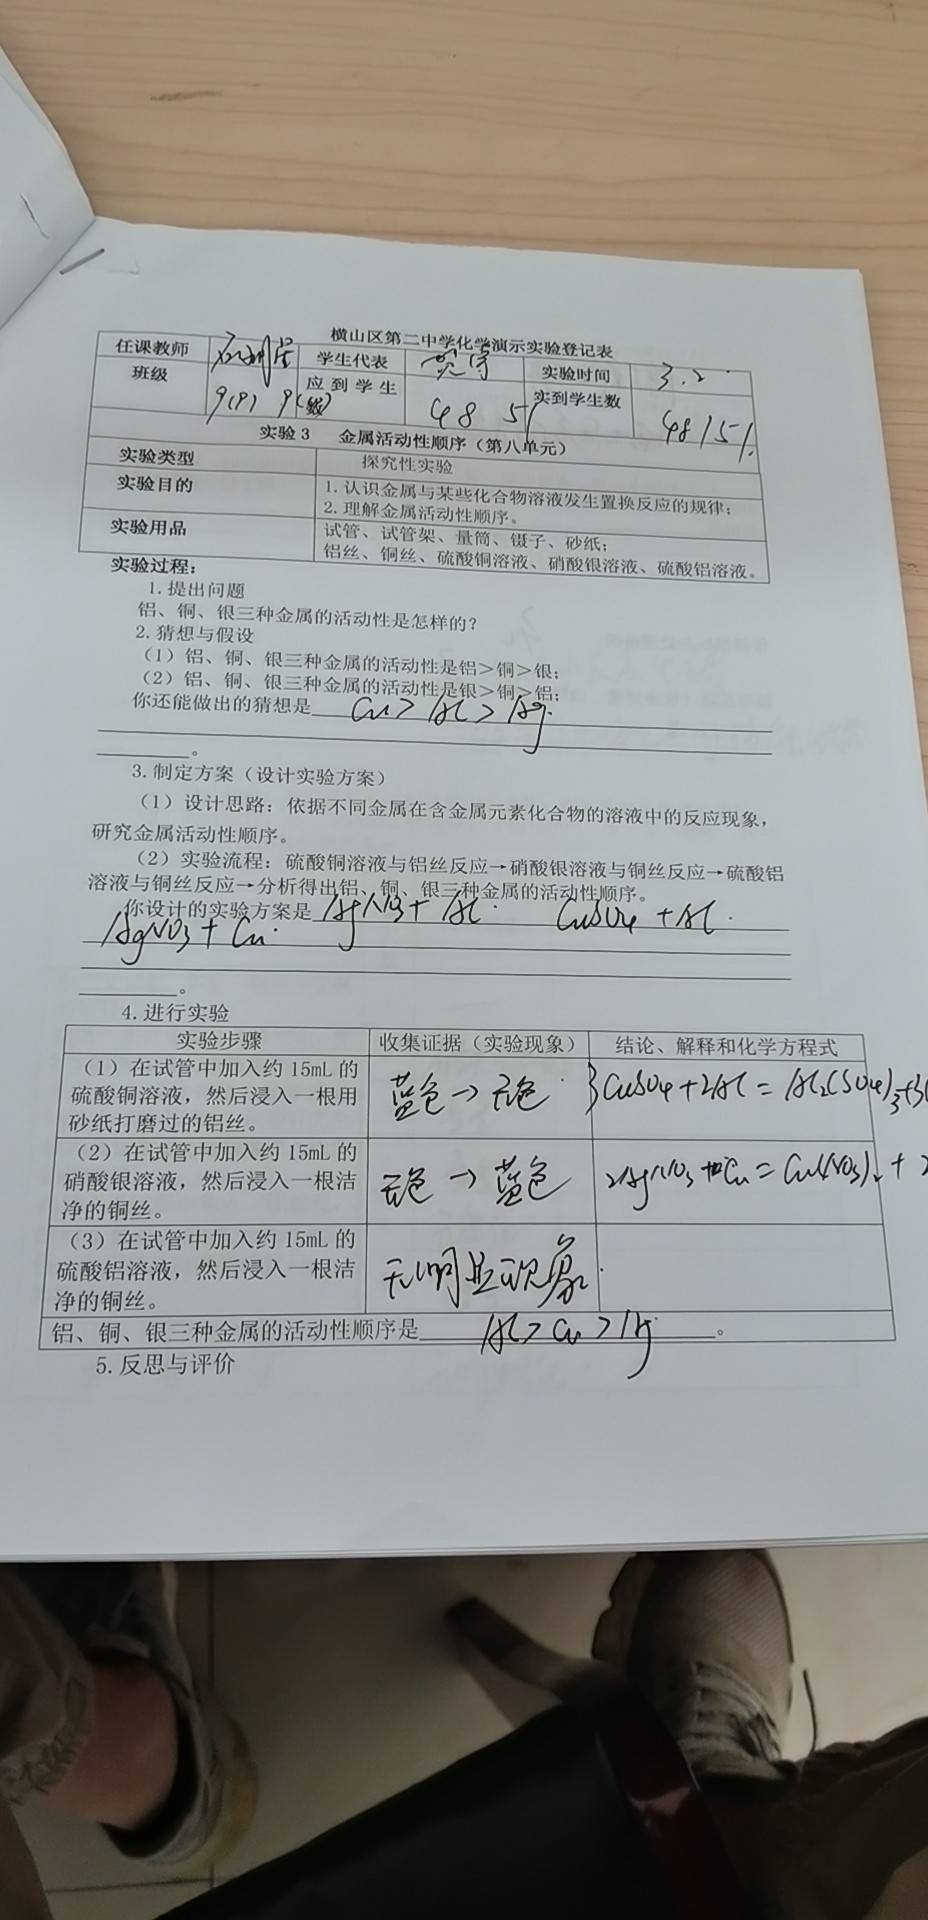 横山区第二中学化学演示实验登记表
任课教师 学生代表 实验时间 3.2
班级 9(8) 应到学生数 48 51 实到学生数 48/51.
实验3 金属活动性顺序（第八单元）
实验类型 探究性实验
实验目的 1.认识金属与某些化合物溶液发生置换反应的规律；
2.理解金属活动性顺序。
实验用品 试管、试管架、量筒、镊子、砂纸；
铝丝、铜丝、硫酸铜溶液、硝酸银溶液、硫酸铝溶液。
实验过程：
1.提出问题
铝、铜、银三种金属的活动性是怎样的？
2.猜想与假设
（1）铝、铜、银三种金属的活动性是铝＞铜＞银；
（2）铝、铜、银三种金属的活动性是银＞铜＞铝；
你还能做出的猜想是 Cu＞Al＞Ag.
。
3.制定方案（设计实验方案）
（1）设计思路：依据不同金属在含金属元素化合物的溶液中的反应现象，
研究金属活动性顺序。
（2）实验流程：硫酸铜溶液与铝丝反应→硝酸银溶液与铜丝反应→硫酸铝
溶液与铜丝反应→分析得出铝、铜、银三种金属的活动性顺序。
你设计的实验方案是 AgNO3+Al. CuSO4+Al.
AgNO3+Cu.
。
4.进行实验
实验步骤 收集证据（实验现象） 结论、解释和化学方程式
（1）在试管中加入约15mL的
硫酸铜溶液，然后浸入一根用
砂纸打磨过的铝丝。
蓝色→无色. 3CuSO4+2Al=Al2(SO4)3+3
（2）在试管中加入约15mL的
硝酸银溶液，然后浸入一根洁
净的铜丝。
无色→蓝色 2AgNO3+Cu=Cu(NO3)2+2
（3）在试管中加入约15mL的
硫酸铝溶液，然后浸入一根洁
净的铜丝。
无明显现象.
铝、铜、银三种金属的活动性顺序是 Al＞Cu＞Ag 。
5.反思与评价